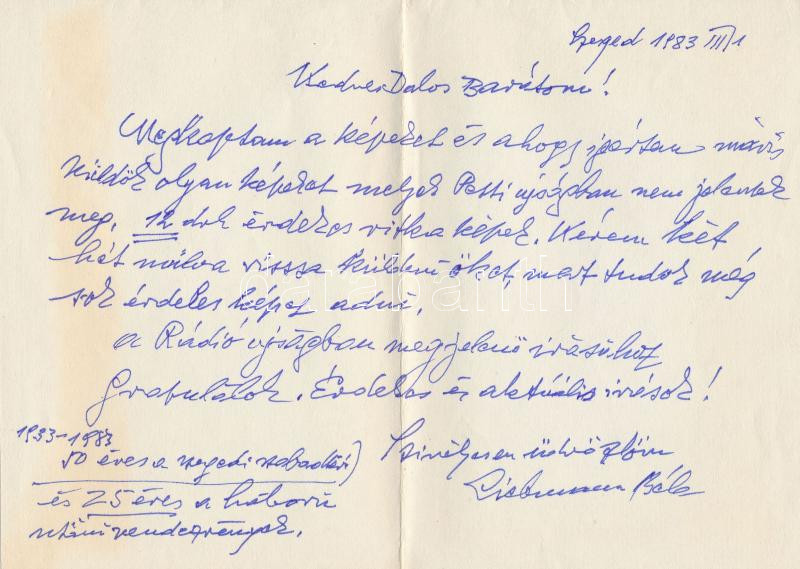 Szeged 1983 III/1
Kedves Dalos Barátom!
Megkaptam a képeket és ahogy igértem máris
küldök olyan képeket melyek Pesti ujságban nem jelentek
meg. 12 drb érdekes ritka képek. Kérem két
hét mulva vissza küldeni őket, mert tudok még
sok érdekes képet adni.
a Rádió ujságban megjelenő irásához
Gratulálok. Érdekes és aktuális irások!
Szivélyesen üdvözlöm
Liebmann Béla
1933-1983
50 éves a szegedi szabadtéri)
és 25 éves a háború
utáni rendezvények.
darabanth